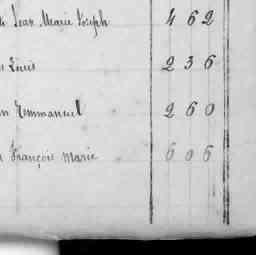 Jean Marie Joseph 462
Louis 236
Emmanuel 260
François Marie 606